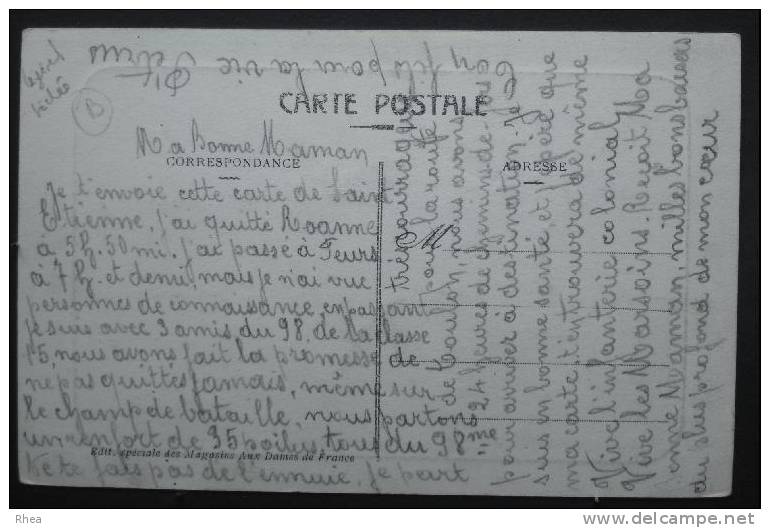 CARTE POSTALE
CORRESPONDANCE
ADRESSE
M
B
Ma Bonne Maman
Je t'envoie cette carte de Saint
Etienne, j'ai quitté Roanne
à 5h. 50 m. j'ai passé à Feurs
à 7h. et demi, mais je n'ai vue
personnes de connaisance, en passant
je suis avec 3 amis du 98, de la classe
15, nous avons fait la promesse de
ne pas quittés jamais, même sur
le champ de bataille, nous partons
un renfort de 35 poilus, tous du 98me
Ne te fais pas de l'ennuie, je part
très courrageux
pour la route
de Toulon, nous avons
24 heures de chemins de
pour arriver à destination. Je
suis en bonne santé, et espère que
ma carte t'en trouvera de même
Vive l'infanterie colonial
Vive les Marsoins. Reçoit Ma
Maman, milles bons baisers
du plus profond de mon cœur
Ton fils pour la vie
Edit. spéciale des Magasins Aux Dames de France
Rhea
www.delcampe.net